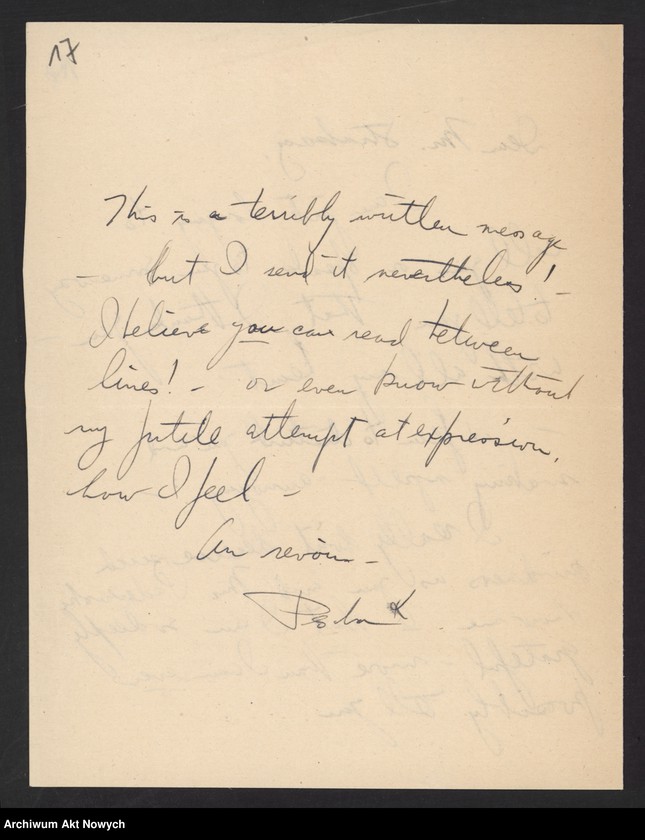 17
This is a terribly written message
- but I send it nevertheless! -
I believe you can read between
lines! - or even know without
my futile attempt at expression,
how I feel -
Au revoir -
Archiwum Akt Nowych